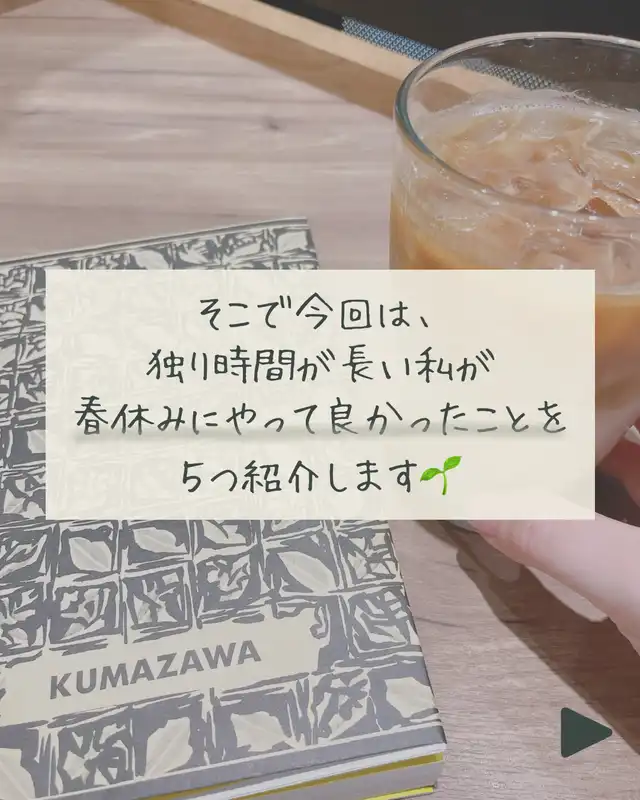 そこで今回は、
独り時間が長い私が
春休みにやって良かったことを
5つ紹介します🌱
KUMAZAWA